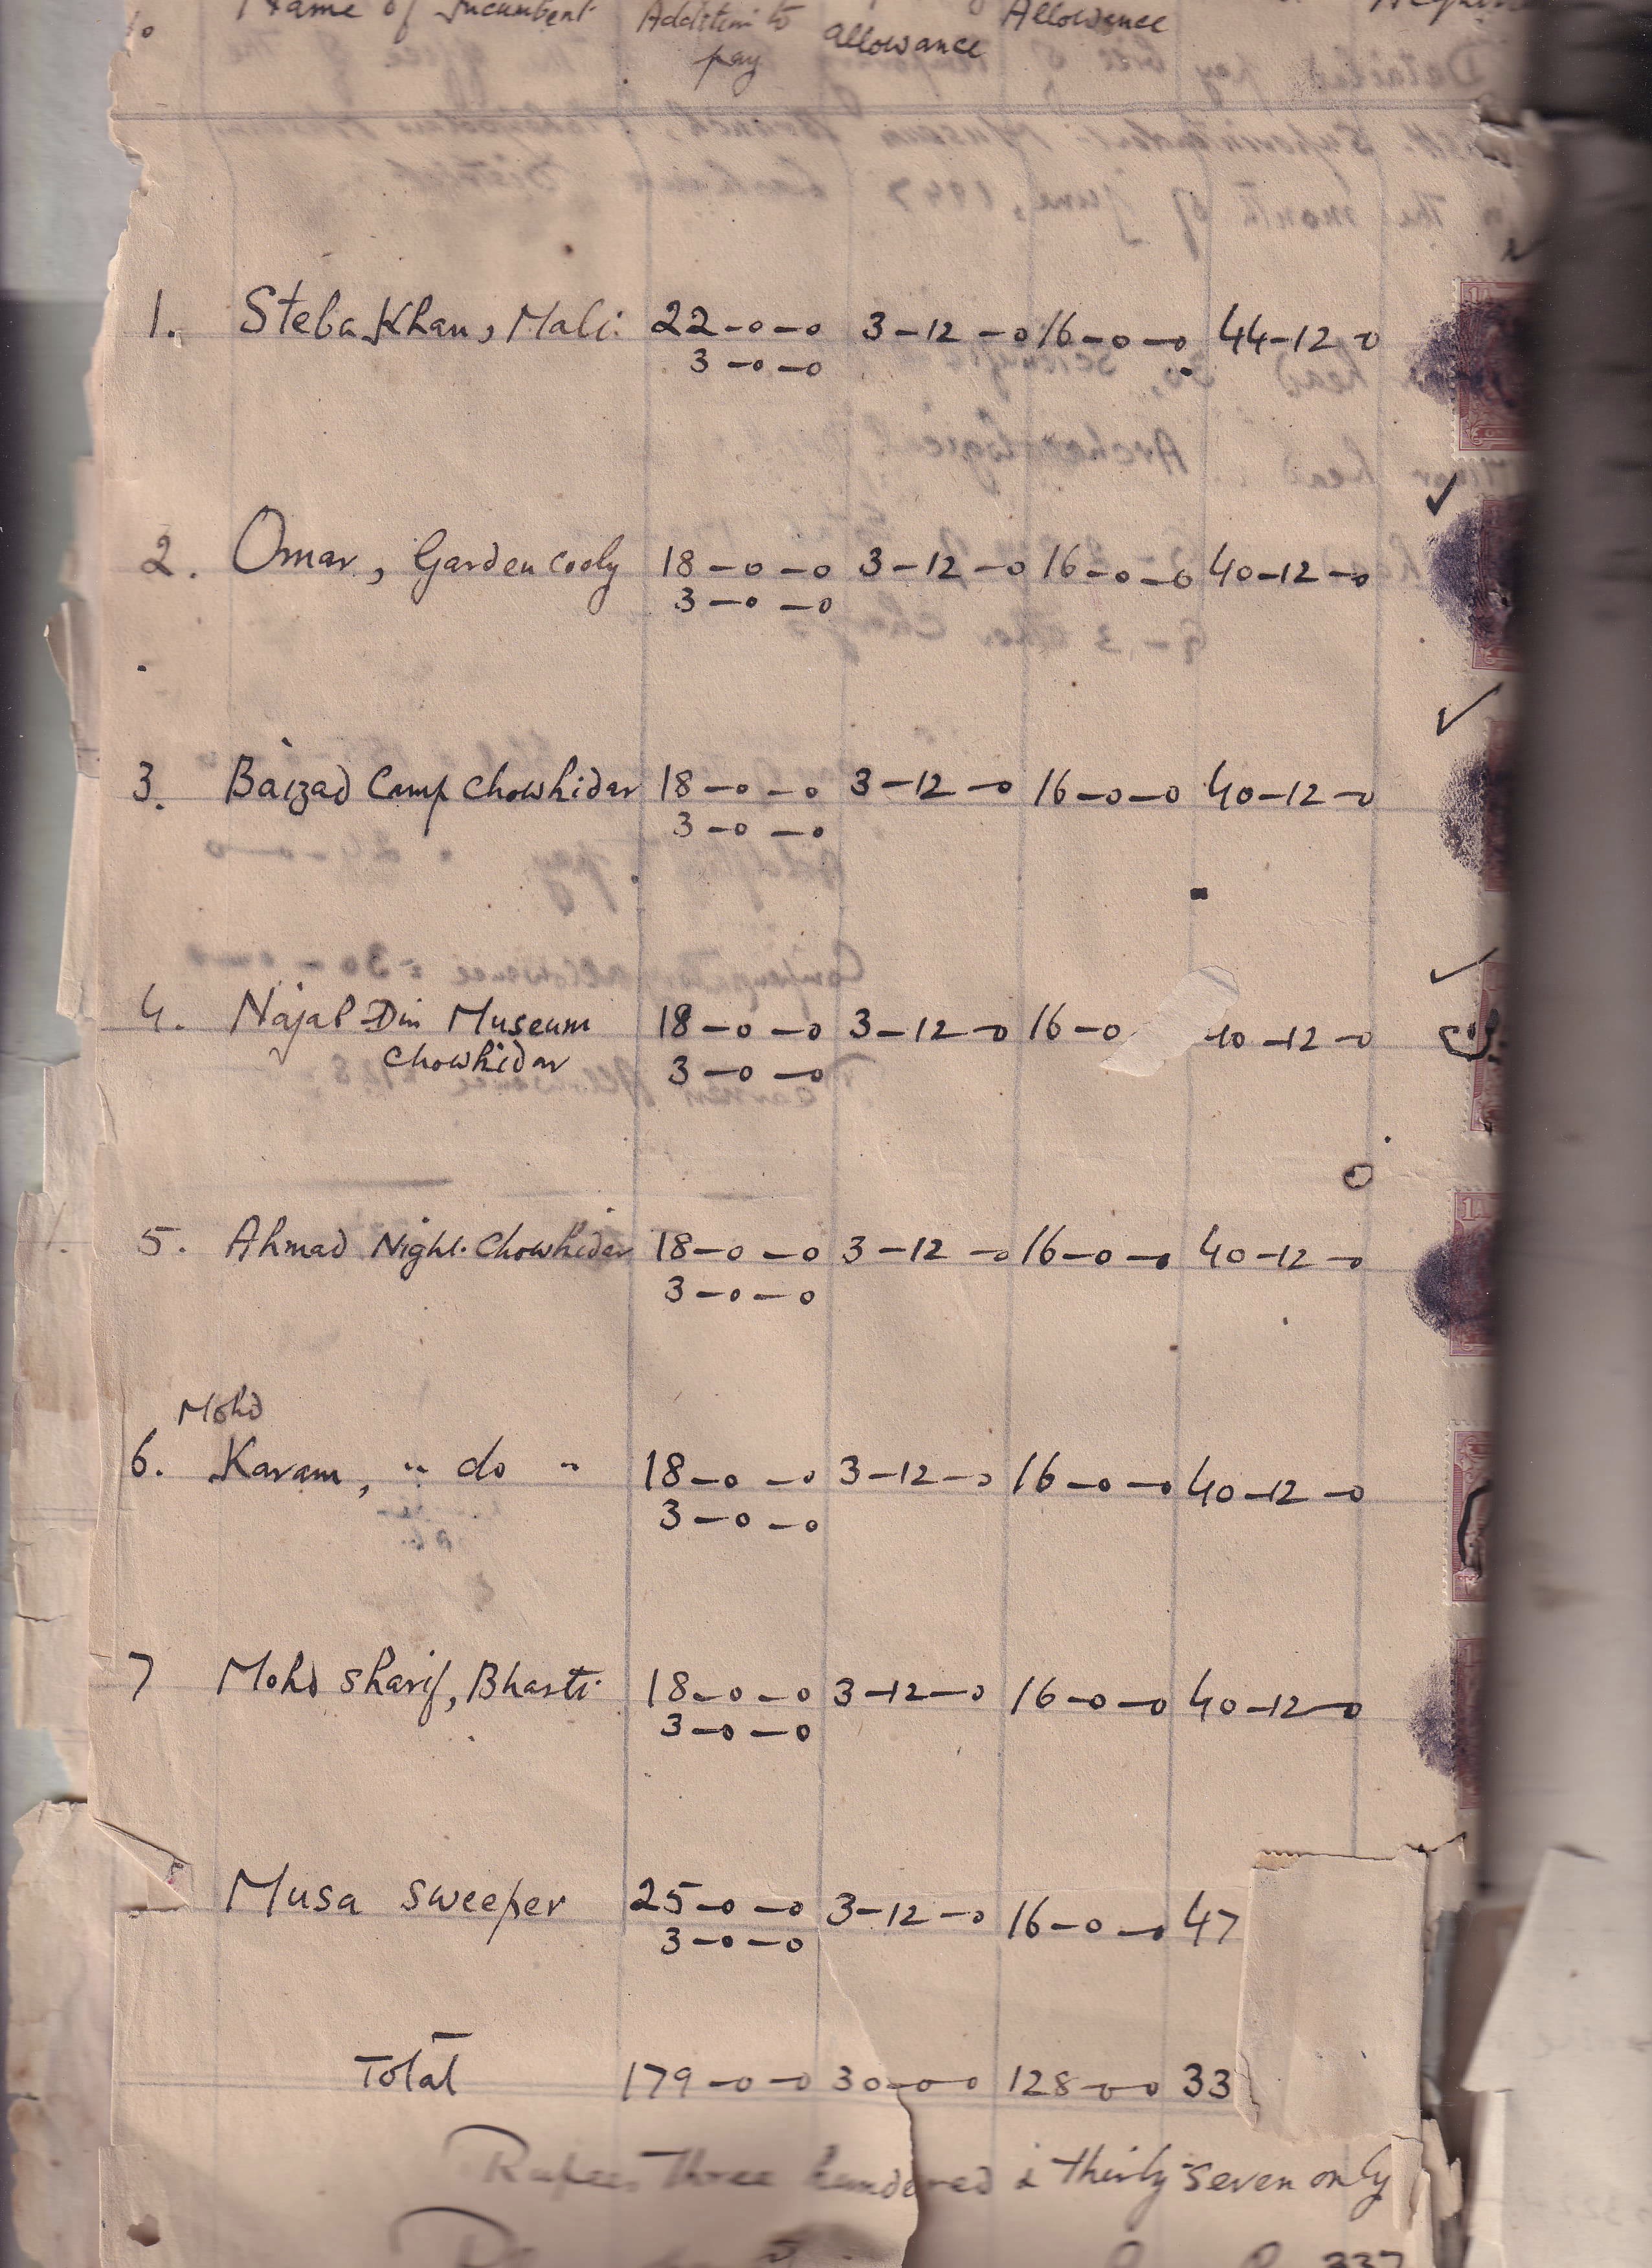 No Name of Incumbent Addition to pay allowance Allowance
1. Steba Khan, Mali 22-0-0 3-12-0 16-0-0 44-12-0
3-0-0
2. Omar, Garden cooly 18-0-0 3-12-0 16-0-0 40-12-0
3-0-0
3. Baizad Camp Chowkidar 18-0-0 3-12-0 16-0-0 40-12-0
3-0-0
4. Najab Din Museum 18-0-0 3-12-0 16-0 40-12-0
Chowkidar 3-0-0
5. Ahmad Night. Chowkidar 18-0-0 3-12-0 16-0-0 40-12-0
3-0-0
Mohd
6. Karam, " do " 18-0-0 3-12-0 16-0-0 40-12-0
3-0-0
7 Mohd Sharif, Bhasti 18-0-0 3-12-0 16-0-0 40-12-0
3-0-0
Musa Sweeper 25-0-0 3-12-0 16-0-0 47
3-0-0
Total 179-0-0 30-0-0 128-0-0 33
Rupees Three hundered & thirty seven only
337